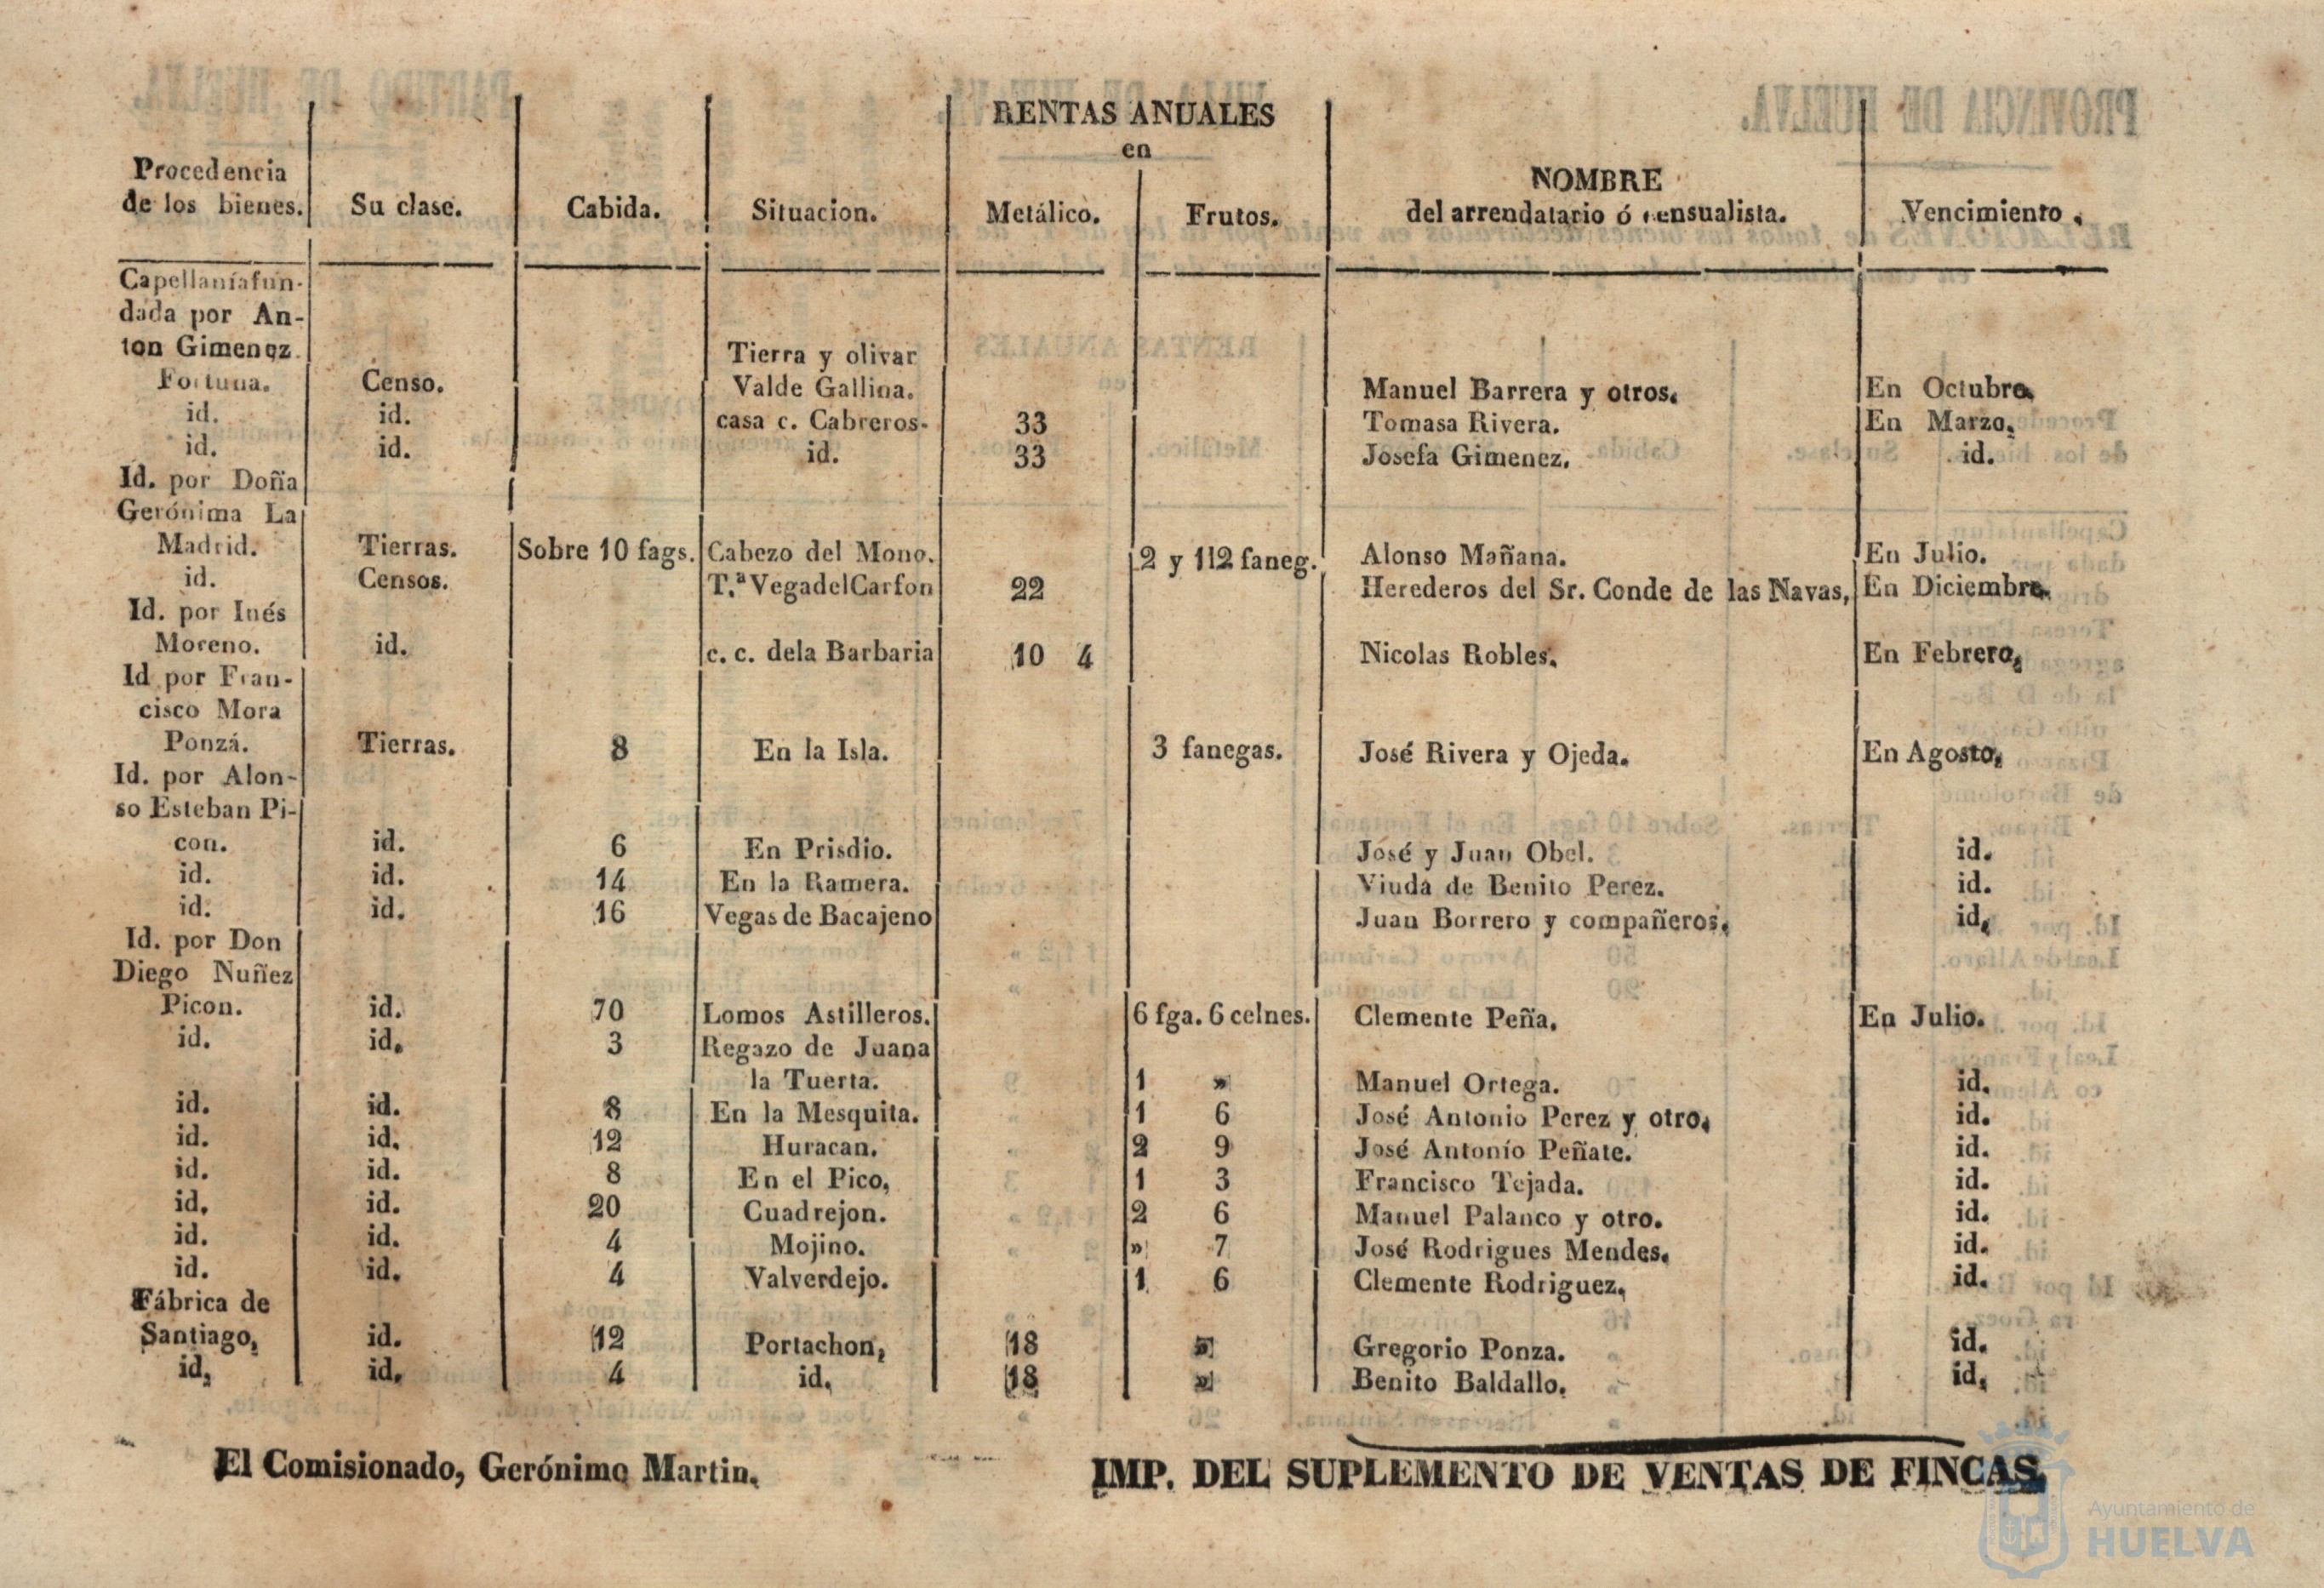 RENTAS ANUALES
en
Procedencia
de los bienes. Su clase. Cabida. Situacion. Metálico. Frutos. NOMBRE
del arrendatario ó censualista. Vencimiento.
Capellaníafun-
dada por An-
ton Gimenez Tierra y olivar
Fortuna. Censo. Valde Gallina. Manuel Barrera y otros. En Octubre.
id. id. casa c. Cabreros. 33 Tomasa Rivera. En Marzo.
id. id. id. 33 Josefa Gimenez. id.
Id. por Doña
Gerónima La
Madrid. Tierras. Sobre 10 fags. Cabezo del Mono. 2 y 112 faneg. Alonso Mañana. En Julio.
id. Censos. T.ª VegadelCarfon 22 Herederos del Sr. Conde de las Navas, En Diciembre.
Id. por Inés
Moreno. id. c. c. dela Barbaria 10 4 Nicolas Robles. En Febrero,
Id por Fran-
cisco Mora
Ponzá. Tierras. 8 En la Isla. 3 fanegas. José Rivera y Ojeda. En Agosto,
Id. por Alon-
so Esteban Pi-
con. id. 6 En Prisdio. José y Juan Obel. id.
id. id. 14 En la Ramera. Viuda de Benito Perez. id.
id. id. 16 Vegas de Bacajeno Juan Borrero y compañeros. id,
Id. por Don
Diego Nuñez
Picon. id. 70 Lomos Astilleros. 6 fga. 6 celnes. Clemente Peña. En Julio.
id. id. 3 Regazo de Juana
la Tuerta. 1 » Manuel Ortega. id.
id. id. 8 En la Mesquita. 1 6 José Antonio Perez y otro. id.
id. id. 12 Huracan. 2 9 José Antonío Peñate. id.
id. id. 8 En el Pico, 1 3 Francisco Tejada. id.
id. id. 20 Cuadrejon. 2 6 Manuel Palanco y otro. id.
id. id. 4 Mojino. » 7 José Rodrigues Mendes. id.
id. id. 4 Valverdejo. 1 6 Clemente Rodriguez, id.
Fábrica de
Santiago, id. 12 Portachon, 18 » Gregorio Ponza. id.
id, id. 4 id. 18 » Benito Baldallo. id,
El Comisionado, Gerónimo Martin. IMP. DEL SUPLEMENTO DE VENTAS DE FINCAS.
Ayuntamiento de
HUELVA